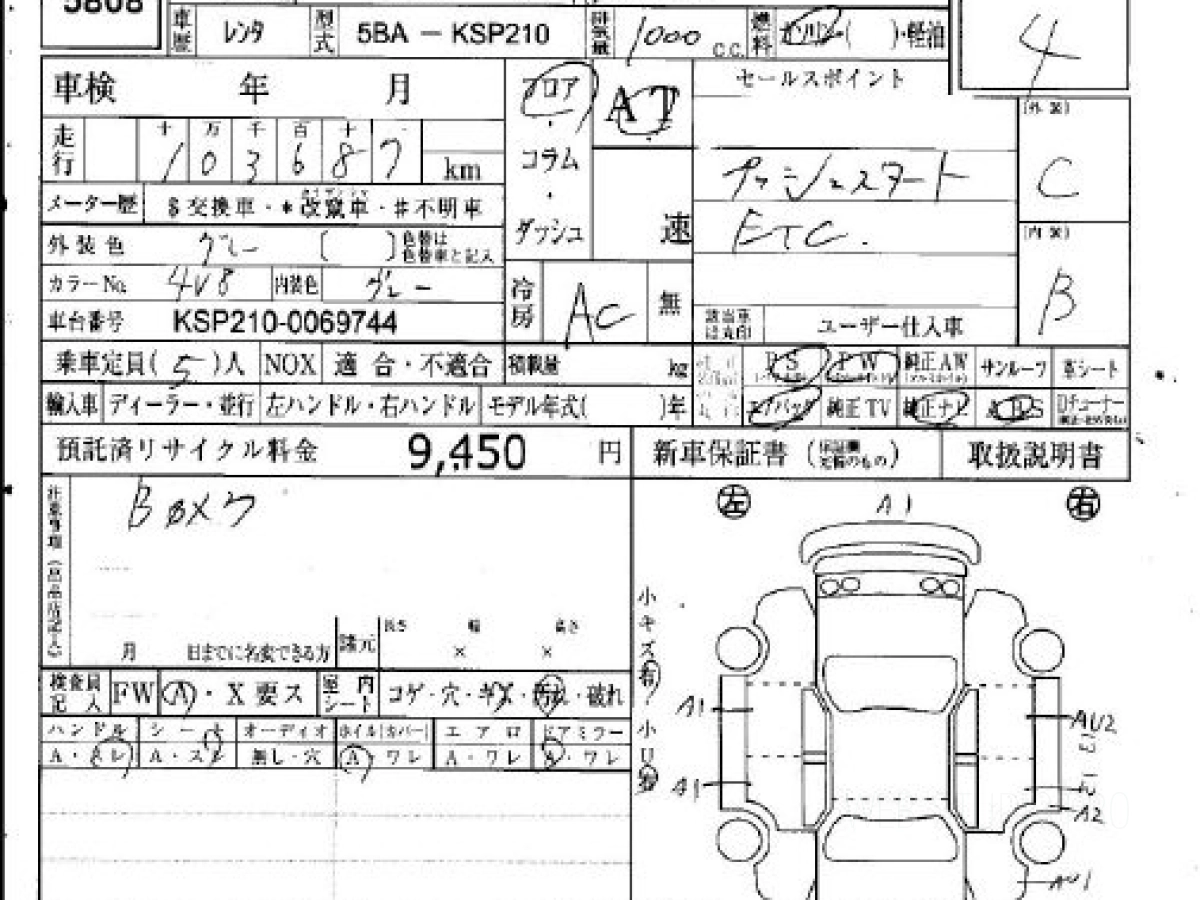 5808
車歴 レンタ 型式 5BA － KSP210 排気量 1000 C.C. 燃料 ガソリン・( )・軽油
4
車検 年 月
フロア・コラム・ダッシュ
AT
速
セールスポイント
プッシュスタート
ETC.
[外装]
C
[内装]
B
走行 十 万 千 百 十
1 0 3 6 8 7 km
メーター歴 $交換車・*改竄車・#不明車
外装色 グレー [ ] 色替は色替車と記入
カラーNo. 4V8 内装色 グレー
冷房 AC 無
車台番号 KSP210-0069744
該当車は丸印 ユーザー仕入車
乗車定員( 5 )人 NOX 適合・不適合 積載量 kg
PS PW 純正AW サンルーフ 革シート
輸入車 ディーラー・並行 左ハンドル・右ハンドル モデル年式( )年
エアバック 純正TV 純正ナビ ABS Dチューナー
預託済リサイクル料金 9,450 円 新車保証書 取扱説明書
月 日までに名変できる方 諸元 長さ 幅 高さ
× ×
検査員記入 FW A・X要ス 室内シート コゲ・穴・キズ・汚れ・破れ
ハンドル シート オーディオ ホイル(カバー) エアロ ドアミラー
A・スレ A・スレ 無し・穴 A・ワレ A・ワレ A・ワレ
左 右
A1
小キズ有
A1
A1
AU2
A2
AU1